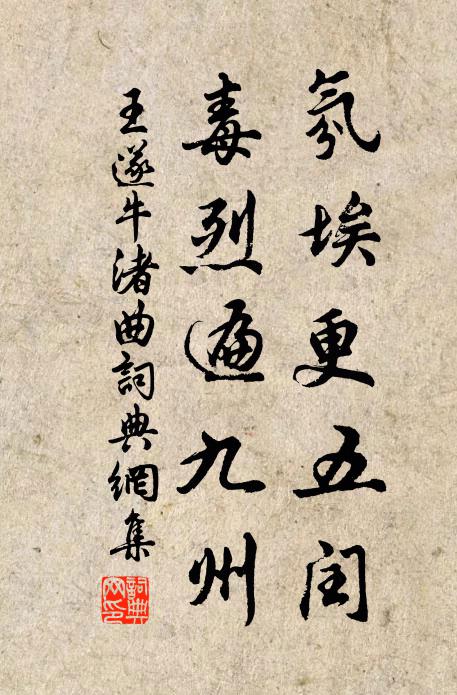 氛埃更五闰
毒烈遍九州
王遂牛渚曲詞典網集
詞典網印